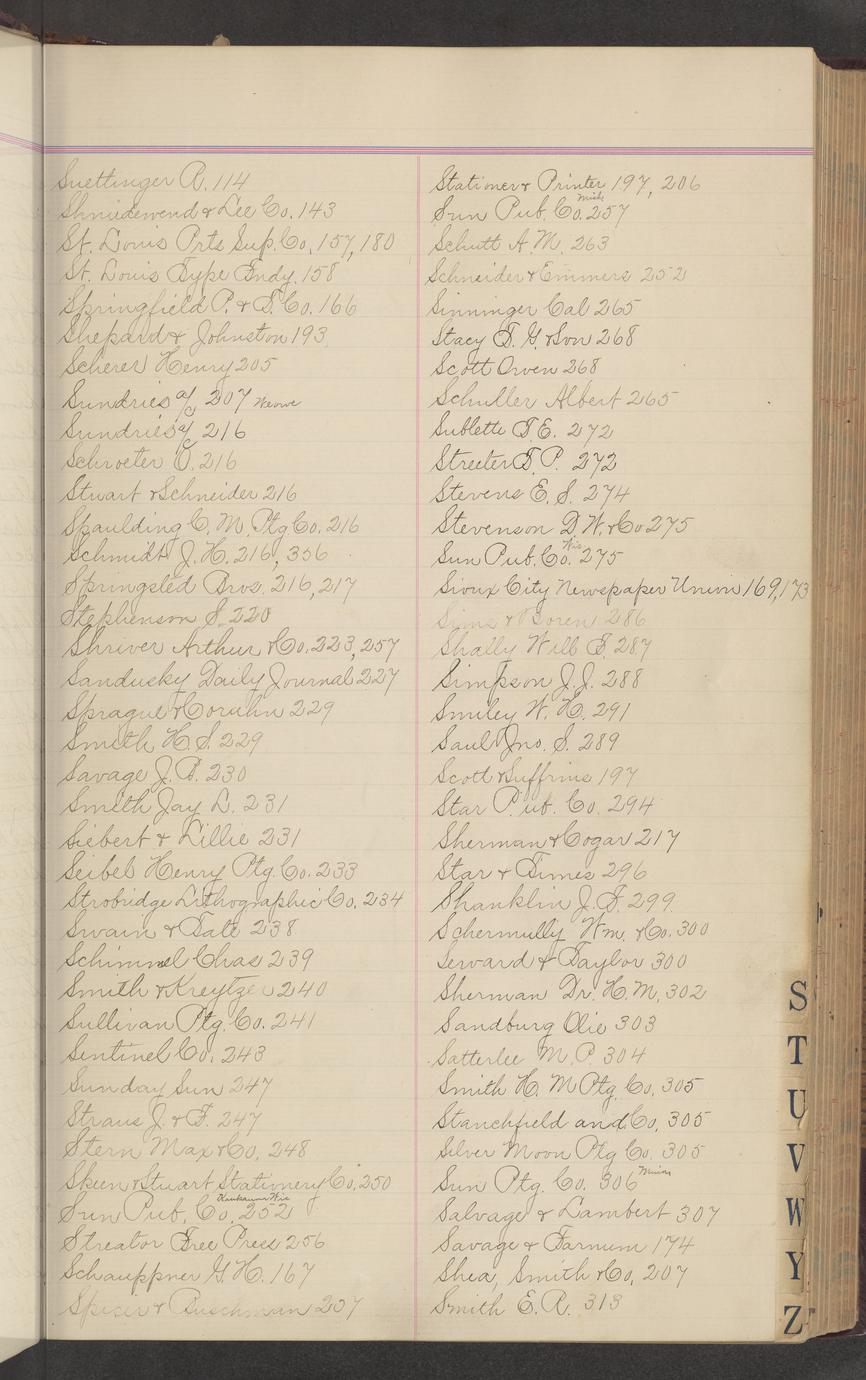 Suettinger R. 114
Shniedewend & Lee Co. 143
St. Louis Prts Sup. Co. 157, 180
St. Louis Type Fndy. 158
Springfield P. & T. Co. 166
Shepard & Johnston 193
Scherer Henry 205
Sundries a/c 207
Sundries a/c 216
Schroeter O. 216
Stuart & Schneider 216
Spaulding C. M. Ptg Co. 216
Schmidt J. H. 216, 356
Springsted Bros. 216, 217
Stephenson S. 220
Shriver Arthur & Co. 223, 257
Sandusky Daily Journal 227
Sprague & 229
Smith H. S. 229
Savage J. B. 230
Smith Jay L. 231
Siebert & Lillie 231
Seibel Henry Ptg. Co. 233
Strobridge Lithographic Co. 234
Swain & Tate 238
Schimmel Chas 239
Smith & Kreytzer 240
Sullivan Ptg. Co. 241
Sentinel Co. 243
Sunday Sun 247
Straus J. & F. 247
Stern Max & Co. 248
Skeen & Stuart Stationery Co. 250
Kaukauna Wis
Sun Pub. Co. 252
Streator Free Press 256
Schauppner G. H. 167
Spicer & Buschman 207
Stationer & Printer 197, 206
Mich
Sun Pub. Co. 257
Schutt A. M. 263
Schneider & Emmers 252
Sinninger Cal 265
Stacy T. G. & Son 268
Scott Orven 268
Schuller Albert 265
Sublette T. E. 272
Streeter T. P. 272
Stevens E. S. 274
Stevenson D. W. & Co 275
Wis
Sun Pub. Co. 275
Sioux City Newspaper Union 169, 173
Sims & Boren 286
Shally Will T. 287
Simpson J. J. 288
Smiley W. H. 291
Saul Jno. S. 289
Scott & Suffrins 197
Star Pub. Co. 294
Sherman & Cogar 217
Star & Times 296
Shanklin J. F. 299
Schermully Wm. & Co. 300
Servard & Taylor 300
Sherman Dr. H. M. 302
Sandburg Olie 303
Satterlee M. P. 304
Smith H. M Ptg Co. 305
Stanchfield and Co. 305
Silver Moon Ptg Co. 305
Sun Ptg. Co. 306 Minn
Salvage & Lambert 307
Savage & Farnum 174
Shea, Smith & Co. 207
Smith E. R. 313
S
T
U
V
W
Y
Z